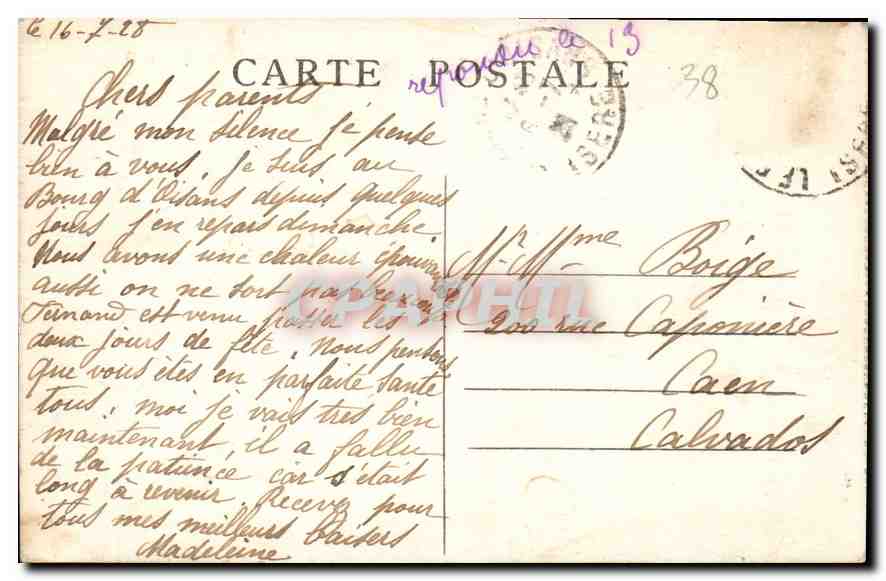 le 16-7-28
CARTE POSTALE
repondu le 19
38
Chers parents
Malgré mon silence je pense
bien à vous, je suis au
Bourg d'Oisans depuis quelques
jours j'en repars dimanche
Nous avons une chaleur
aussi on ne sort pas
Fernand est venu passer les
deux jours de fête. Nous pensons
que vous êtes en parfaite santé
tous, moi je vais très bien
maintenant il a fallu
de la patience car s'était
long à revenir. Recevez pour
tous mes meilleurs baisers
Madeleine
Mr Mme Boige
200 rue Caponière
Caen
Calvados
ISERE
CPARHIL